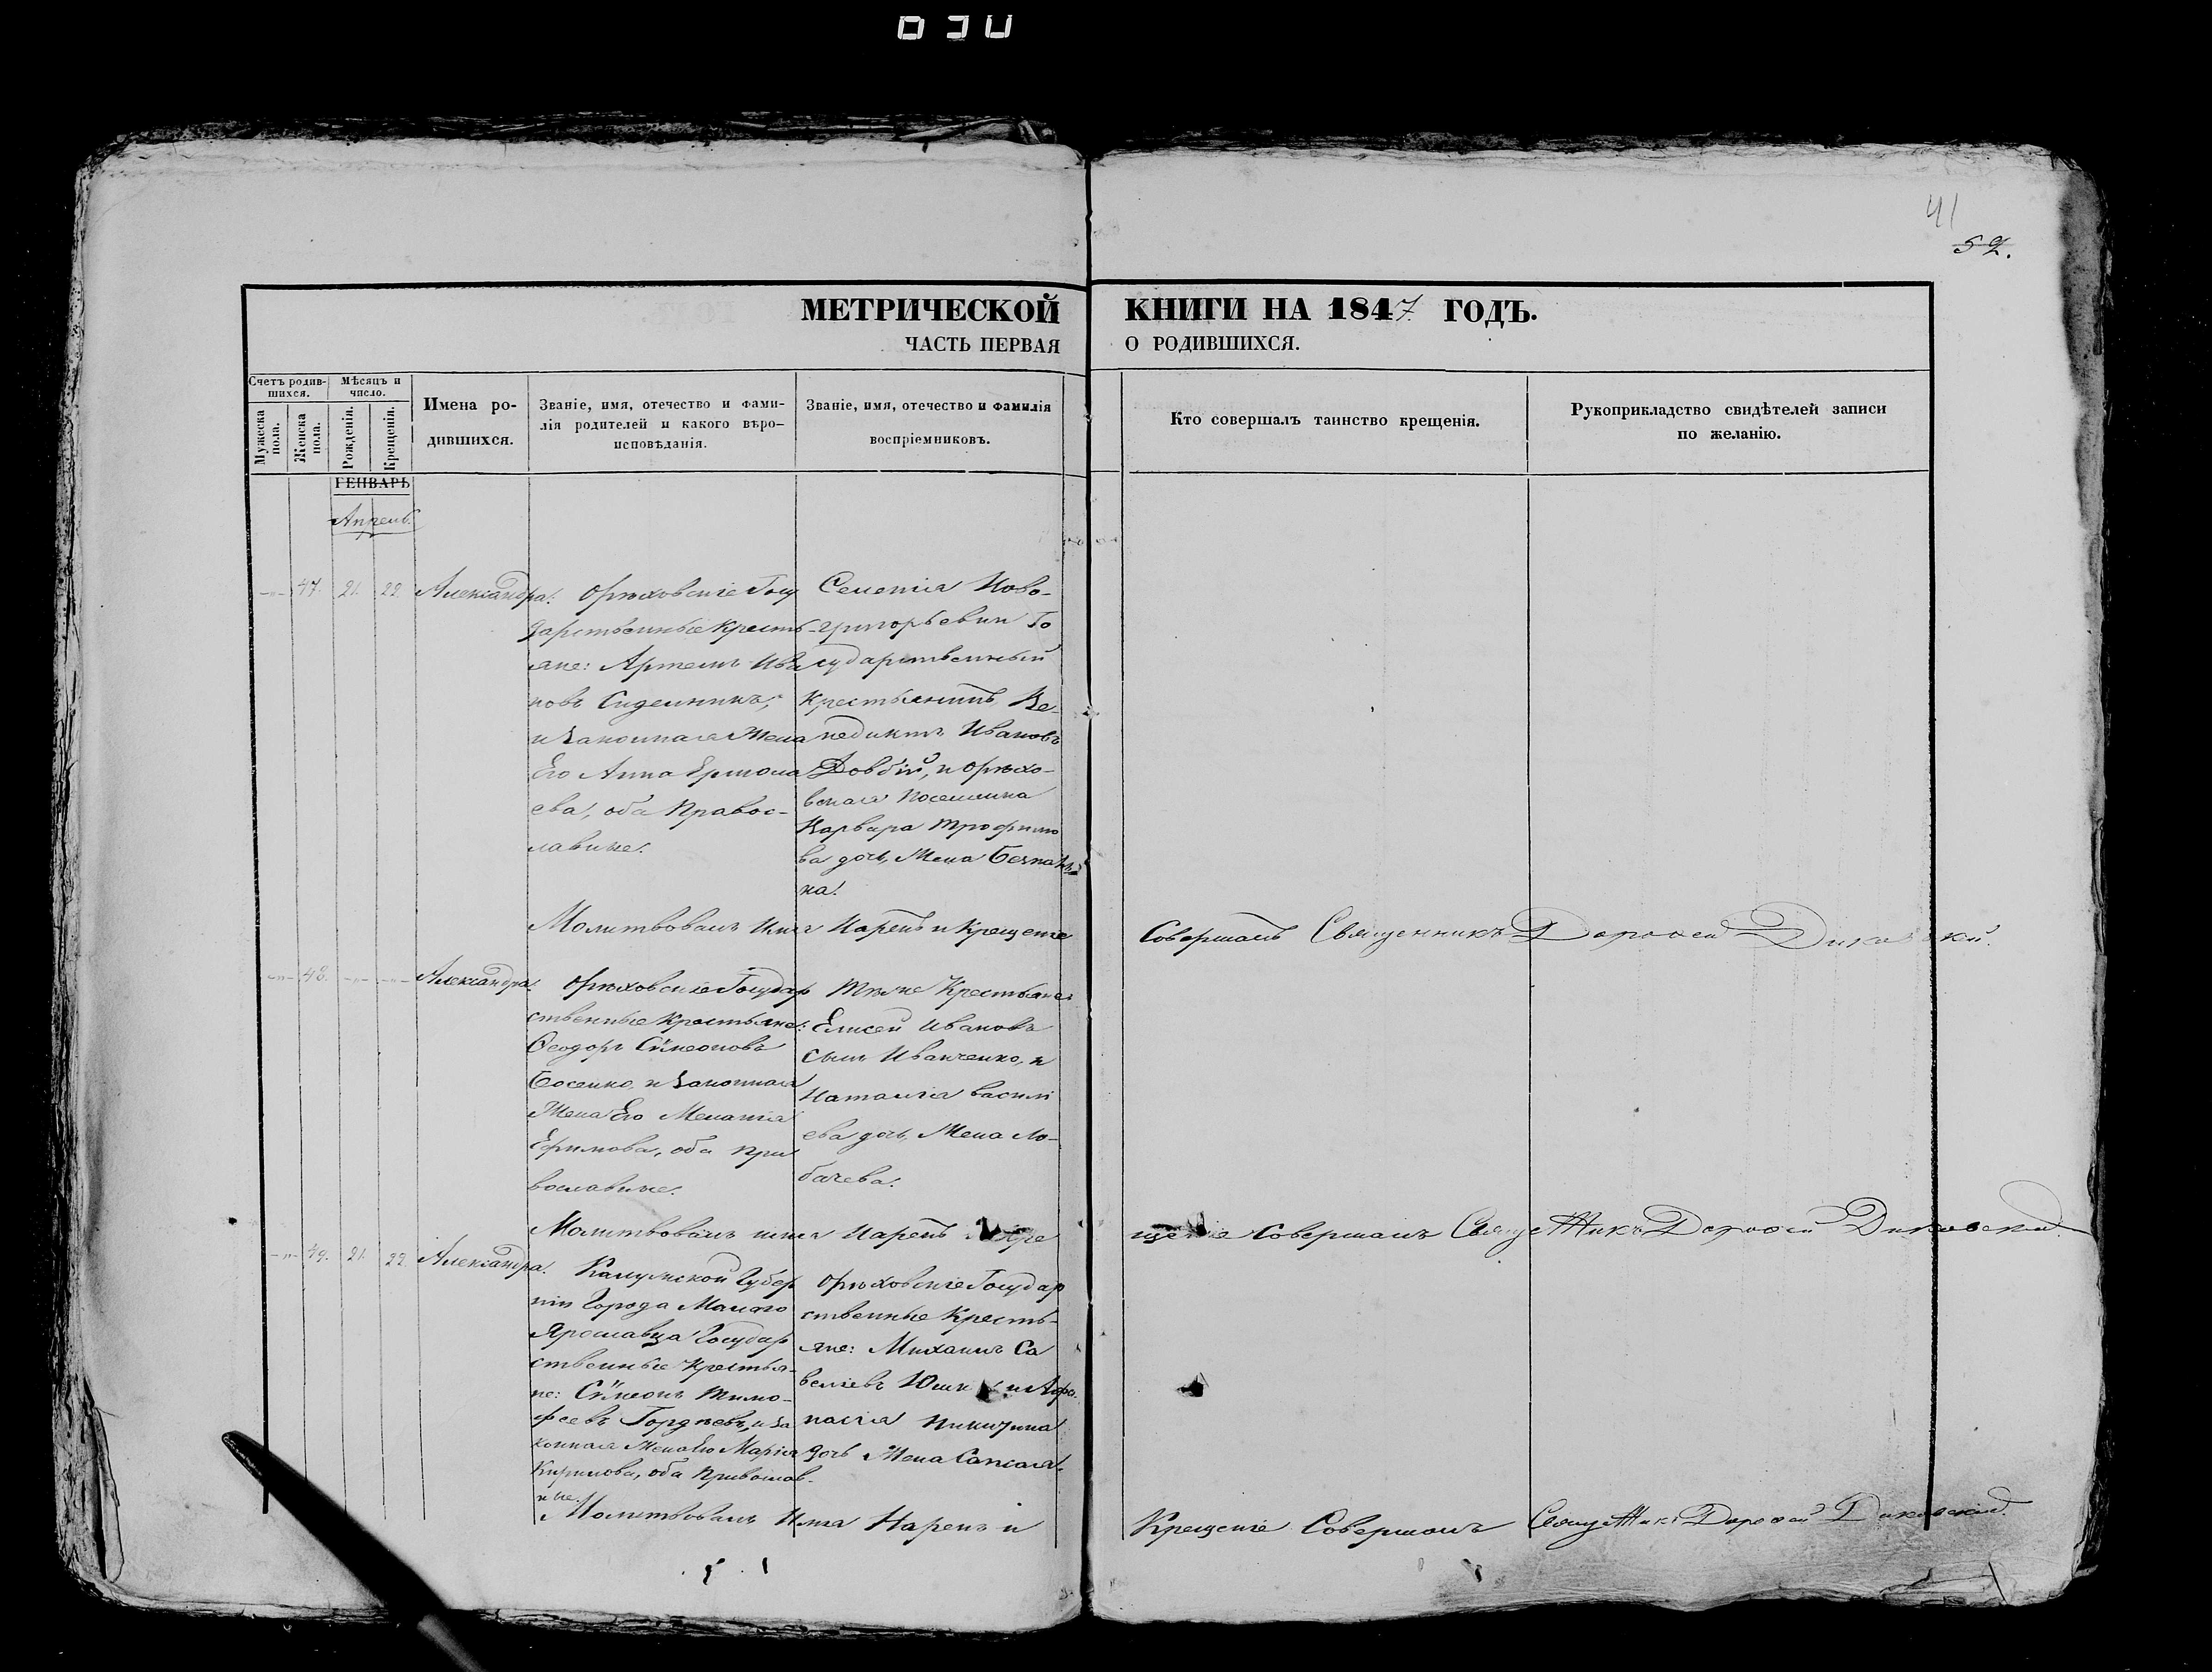 030
41
52.
МЕТРИЧЕСКОЙ КНИГИ НА 1847 ГОДЪ.
ЧАСТЬ ПЕРВАЯ О РОДИВШИХСЯ.
Счетъ родив-
шихся.
Мужеска пола.
Женска пола.
Мѣсяцъ и
число.
Рожденія.
Крещенія.
Имена ро-
дившихся.
Званіе, имя, отечество и фами-
лія родителей и какого вѣро-
исповѣданія.
Званіе, имя, отечество и фамилія
воспріемниковъ.
Кто совершалъ таинство крещенія.
Рукоприкладство свидѣтелей записи
по желанію.
ГЕНВАРЬ
Апрель.
47. 21. 22. Александра.
Орѣховскіе Госу
дарственные кресть-
яне: Артемъ Ива
новъ Сиделникъ,
и законная Жена
Его Анна Ермола
ева, оба Правос-
лавные.
Семенія Ново-
григорьевки Го
сударственный
крестьянинъ Ве-
недиктъ Ивановъ
Довбій, и Орѣхо-
вская Поселянка
Варвара Трофимо
ва дочь, Жена
ка.
Молитвовалъ Имя Нарекъ и Крещеніе Совершалъ Священникъ Дорофей Диковскій.
48. Александра.
Орѣховскіе Государ
ственные крестьяне:
Ѳеодоръ Сѵмеоновъ
Босенко, и законная
Жена Его Меланія
Ефимова, оба Пра
вославные.
Тѣже Крестьяне:
Елисей Ивановъ
сынъ Иванченко, и
Наталія Васили
ева дочь, Жена Ло-
бачева.
Молитвовалъ имя Нарекъ и Кре щеніе Совершалъ Священникъ Дорофей Диковскій.
49. 21. 22. Александра.
Калужской Губер
ніи Города Малаго
Ярославца Государ
ственные Крестья-
не: Сѵмеонъ Тимо-
феевъ Гордѣевъ, и за
конная Жена Его Марія
Кирилова, оба Православ-
ные.
Орѣховскіе Государ
ственные Кресть-
яне: Михаилъ Са
веліевъ и Афа
насія Никитина
дочь Жена
Молитвовалъ Имя Нарекъ и Крещеніе Совершалъ Священникъ Дорофей Диковскій.